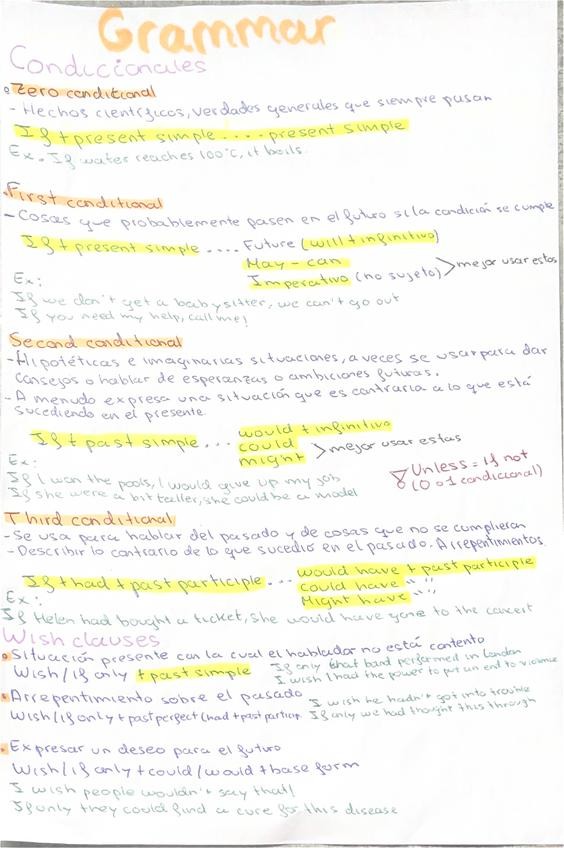 Grammar
Condicionales
Zero conditional
- Hechos científicos, verdades generales que siempre pasan
If + present simple .... present simple
Ex. If water reaches 100°C, it boils.
First conditional
- Cosas que probablemente pasen en el futuro si la condición se cumple
If + present simple .... Future (will + infinitivo)
May - can
Imperativo (no sujeto) > mejor usar estos
Ex:
If we don't get a babysitter, we can't go out
If you need my help, call me!
Second conditional
- Hipotéticas e imaginarias situaciones, a veces se usar para dar
consejos o hablar de esperanzas o ambiciones futuras.
- A menudo expresa una situación que es contraria a lo que está
sucediendo en el presente
If + past simple ... would + infinitivo
could
might > mejor usar estas
Ex:
If I won the pools, I would give up my job
If she were a bit taller, she could be a model
Unless = if not
(0 o 1 condicional)
Third conditional
- Se usa para hablar del pasado y de cosas que no se cumplieran
- Describir lo contrario de lo que sucedio en el pasado. Arrepentimientos
If + had + past participle ... would have + past participle
could have " "
Might have " "
Ex:
If Helen had bought a ticket, she would have gone to the concert
Wish clauses
Situación presente con la cual el hablador no está contento
Wish/if only + past simple
If only that band performed in London
I wish I had the power to put an end to violence
Arrepentimiento sobre el pasado
Wish/if only + past perfect (had + past particip.
I wish he hadn't got into trouble
If only we had thought this through
Expresar un deseo para el futuro
Wish/if only + could/would + base form
I wish people wouldn't say that!
If only they could find a cure for this disease